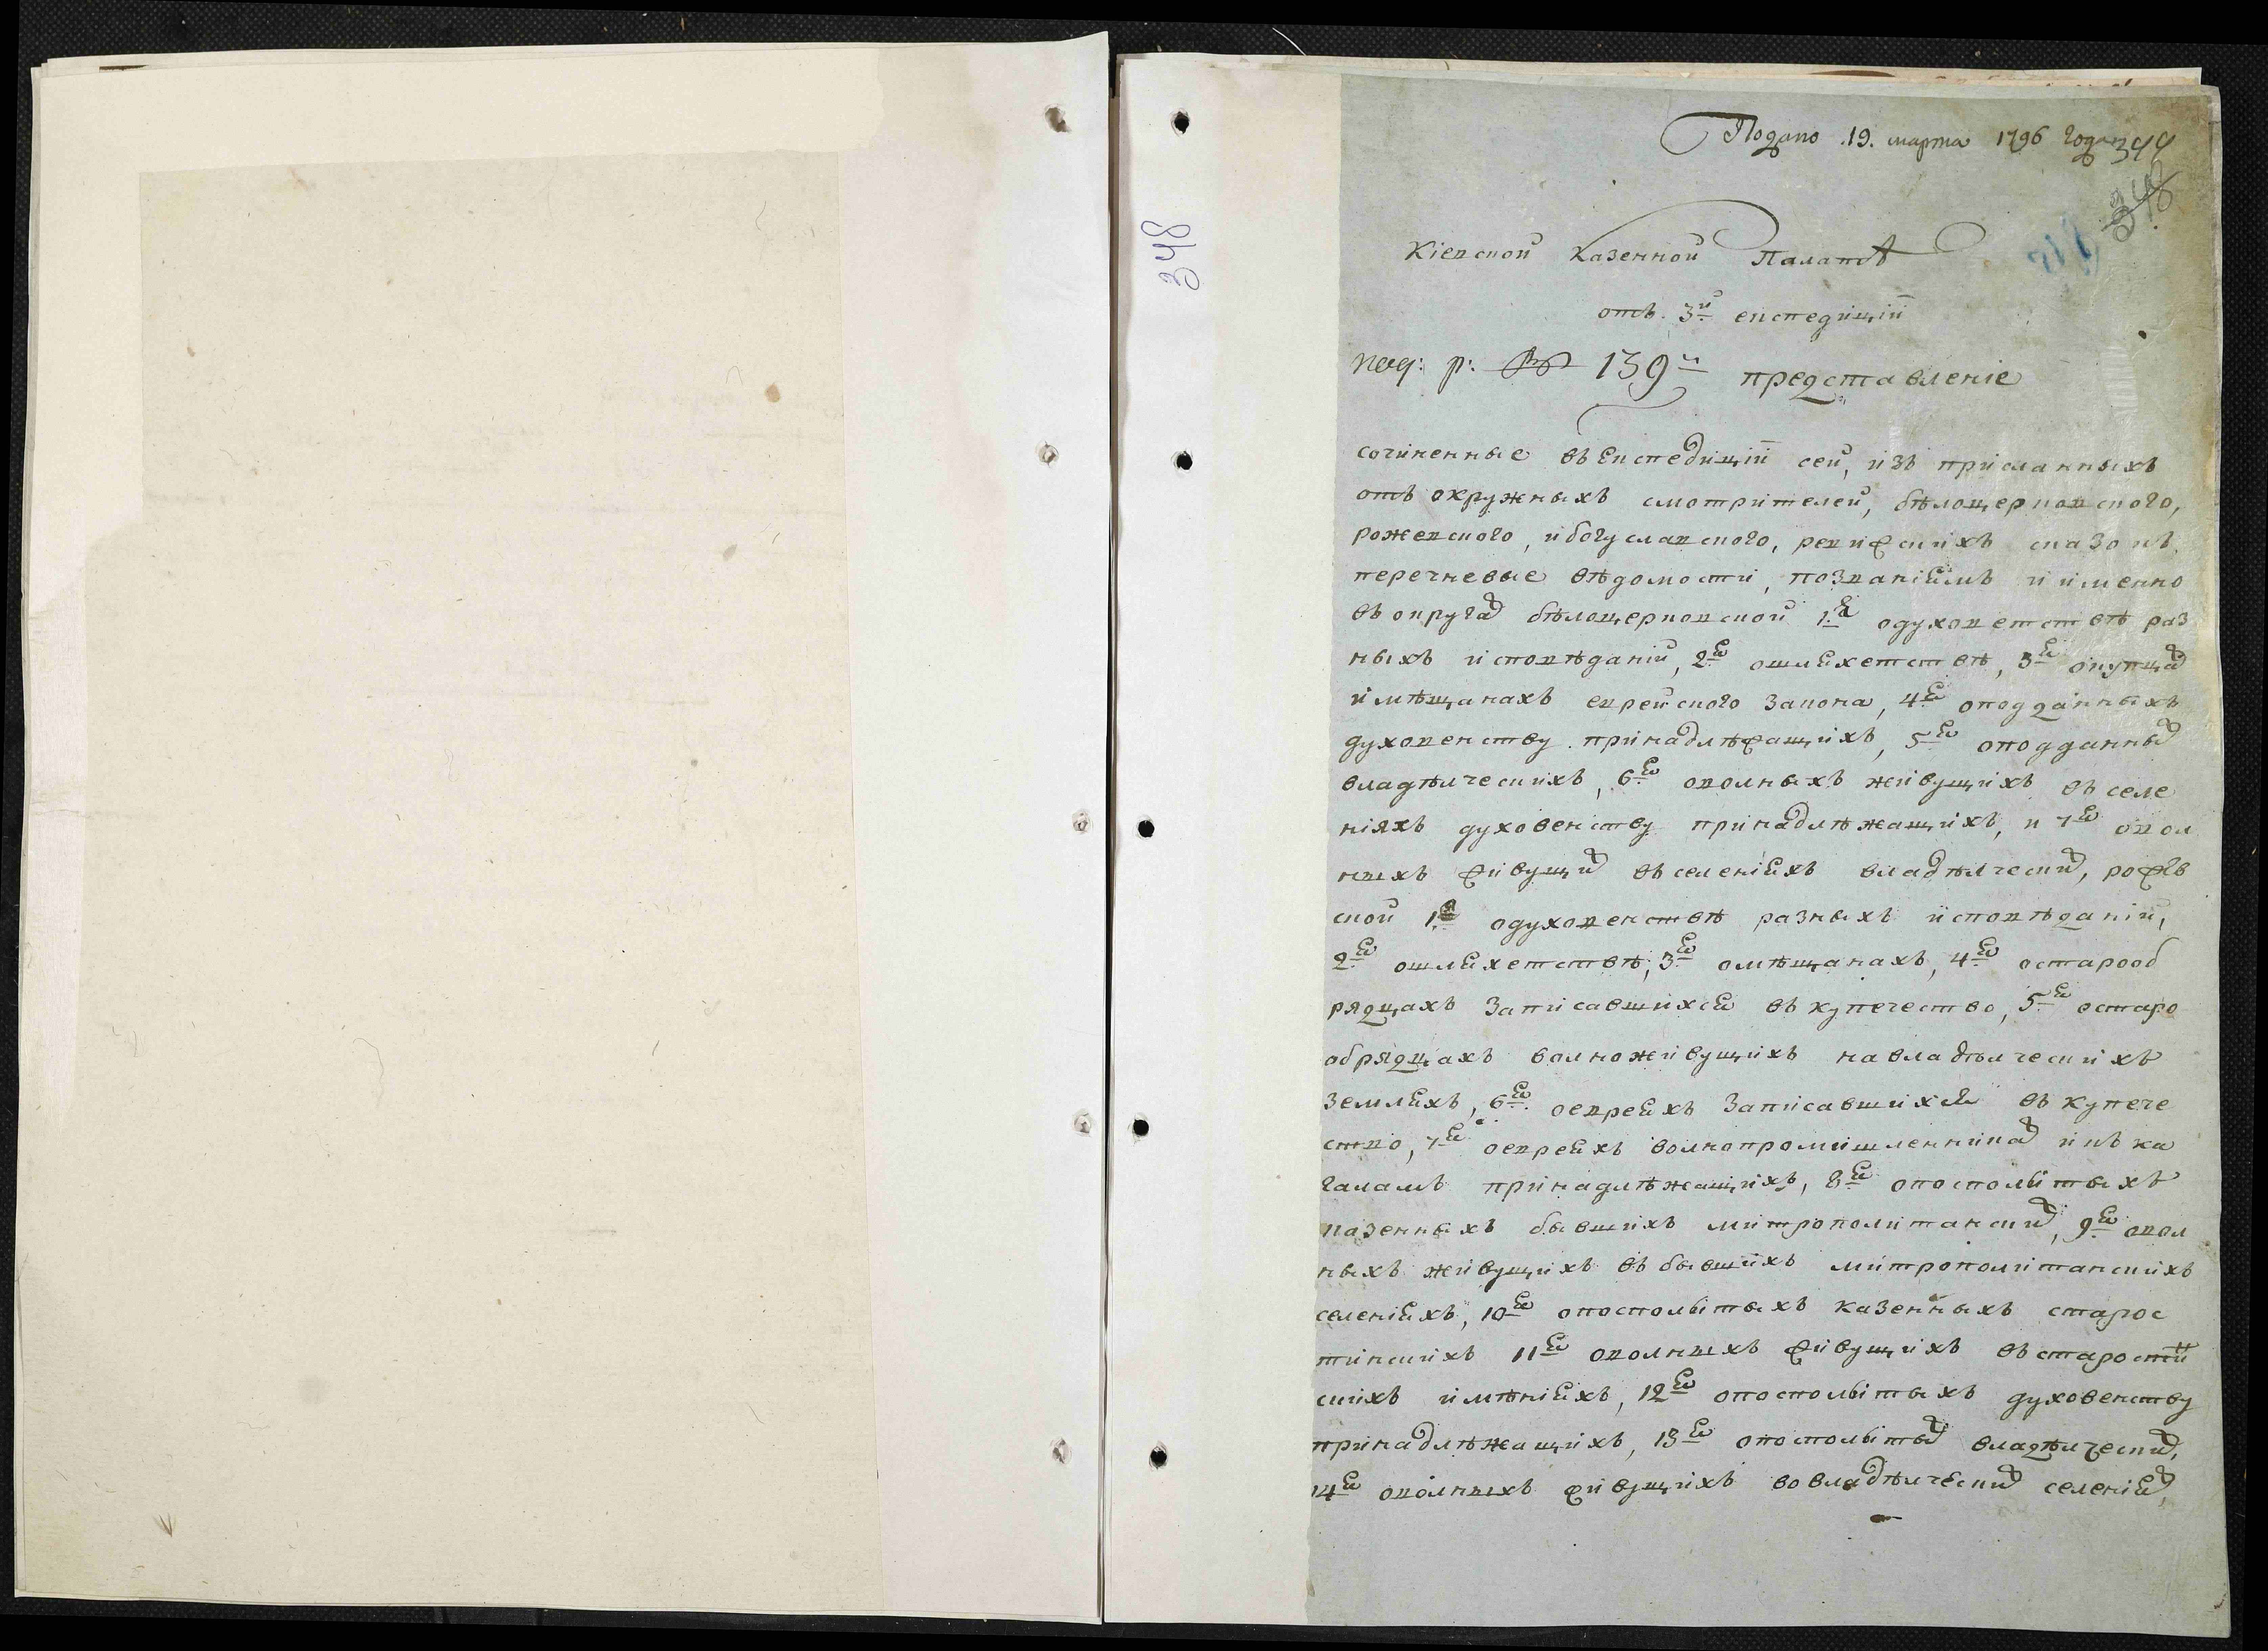 Подано .19. марта 1796 года 344
348
348
Кіевской Казенной Палатѣ
отъ 3й експедицїи
139 представленіе
сочиненные въ Експедицїи сей, изъ присланныхъ
отъ окружныхъ смотрителей, бѣлоцерковского,
рожевского, и богуславского, ревизскихъ сказокъ
перечневые вѣдомости, по званіямъ и именно
въ округах бѣлоцерковской 1я о духовентствѣ раз
ныхъ исповѣданій, 2я о шляхетствѣ, 3я о купцах
и мѣщанахъ еврейского закона, 4я о подданныхъ
духовенству принадлѣжащихъ, 5я о подданных
владѣлческихъ, 6я о волныхъ живущихъ въ селе
ніяхъ духовенству принадлѣжащихъ, и 7я о вол
ныхъ живущих въ селеніяхъ владѣлческих, рожев
ской 1я о духовенствѣ разныхъ исповѣданій,
2я о шляхетствѣ, 3я о мѣщанахъ, 4я о старооб
рядцахъ записавшихся въ купечество, 5я о старо
обрядцахъ волножывущихъ на владѣлческихъ
земляхъ, 6я о евреяхъ записавшихся въ купече
ство, 7я о евреяхъ волнопромишленниках и къ ка
галамъ принадлѣжащихъ, 8я о посполытыхъ
казенныхъ бывшихъ митрополитанских, 9я о вол
ныхъ живущихъ въ бывшихъ митрополитанскихъ
селеніяхъ, 10я о посполытыхъ казенныхъ старос
тинскихъ 11я о волныхъ живущихъ въ старостин
скихъ имѣніяхъ, 12я о посполытыхъ духовенству
принадлѣжащихъ, 13я о посполытых владѣлческих,
14я о волныхъ живущихъ во владѣлческих селеніях,